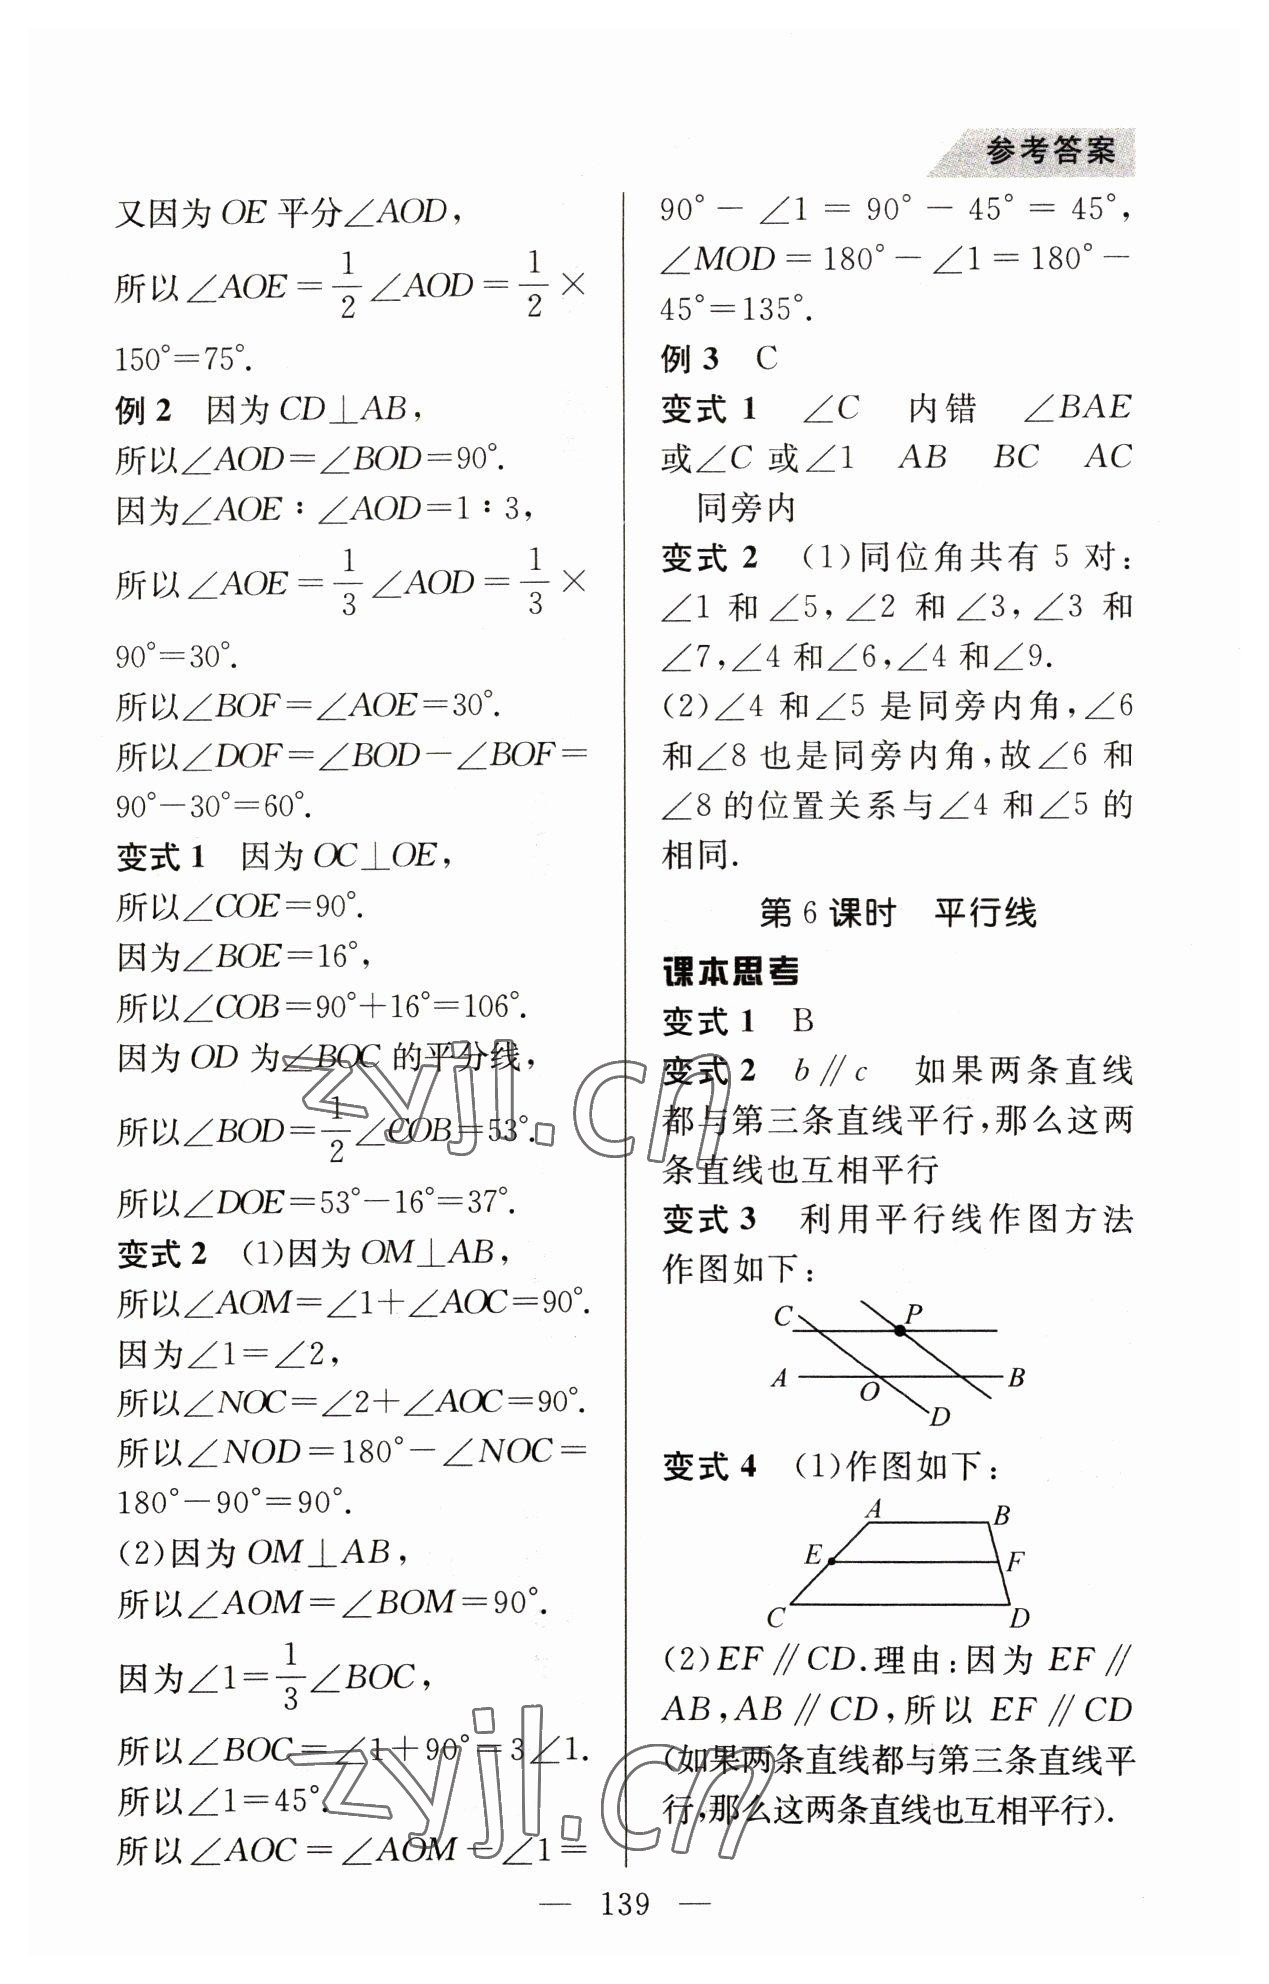 参考答案
又因为 OE 平分∠AOD，
所以∠AOE=1/2∠AOD=1/2×
150°=75°.
例 2　因为 CD⊥AB，
所以∠AOD=∠BOD=90°.
因为∠AOE∶∠AOD=1∶3，
所以∠AOE=1/3∠AOD=1/3×
90°=30°.
所以∠BOF=∠AOE=30°.
所以∠DOF=∠BOD−∠BOF=
90°−30°=60°.
变式 1　因为 OC⊥OE，
所以∠COE=90°.
因为∠BOE=16°，
所以∠COB=90°+16°=106°.
因为 OD 为∠BOC 的平分线，
所以∠BOD=1/2∠COB=53°.
所以∠DOE=53°−16°=37°.
变式 2　(1)因为 OM⊥AB，
所以∠AOM=∠1+∠AOC=90°.
因为∠1=∠2，
所以∠NOC=∠2+∠AOC=90°.
所以∠NOD=180°−∠NOC=
180°−90°=90°.
(2)因为 OM⊥AB，
所以∠AOM=∠BOM=90°.
因为∠1=1/3∠BOC，
所以∠BOC=∠1+90°=3∠1.
所以∠1=45°.
所以∠AOC=∠AOM−∠1=
90°−∠1=90°−45°=45°，
∠MOD=180°−∠1=180°−
45°=135°.
例 3　C
变式 1　∠C　内错　∠BAE
或∠C 或∠1　AB　BC　AC
同旁内
变式 2　(1)同位角共有 5 对：
∠1 和∠5，∠2 和∠3，∠3 和
∠7，∠4 和∠6，∠4 和∠9.
(2)∠4 和∠5 是同旁内角，∠6
和∠8 也是同旁内角，故∠6 和
∠8 的位置关系与∠4 和∠5 的
相同.
第 6 课时　平行线
课本思考
变式 1　B
变式 2　b∥c　如果两条直线
都与第三条直线平行，那么这两
条直线也互相平行
变式 3　利用平行线作图方法
作图如下：
C P
A O B
D
变式 4　(1)作图如下：
A B
E F
C D
(2)EF∥CD.理由：因为 EF∥
AB，AB∥CD，所以 EF∥CD
(如果两条直线都与第三条直线平
行，那么这两条直线也互相平行).
— 139 —
zyjl.cn
zyjl.cn